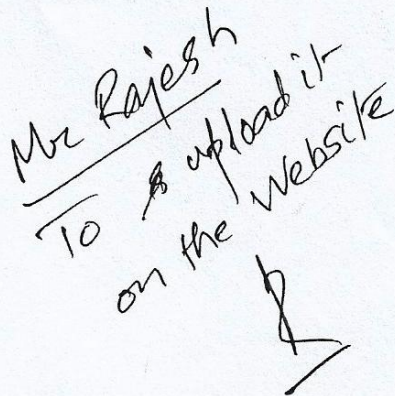 Mr Rajesh
To upload it
on the Website